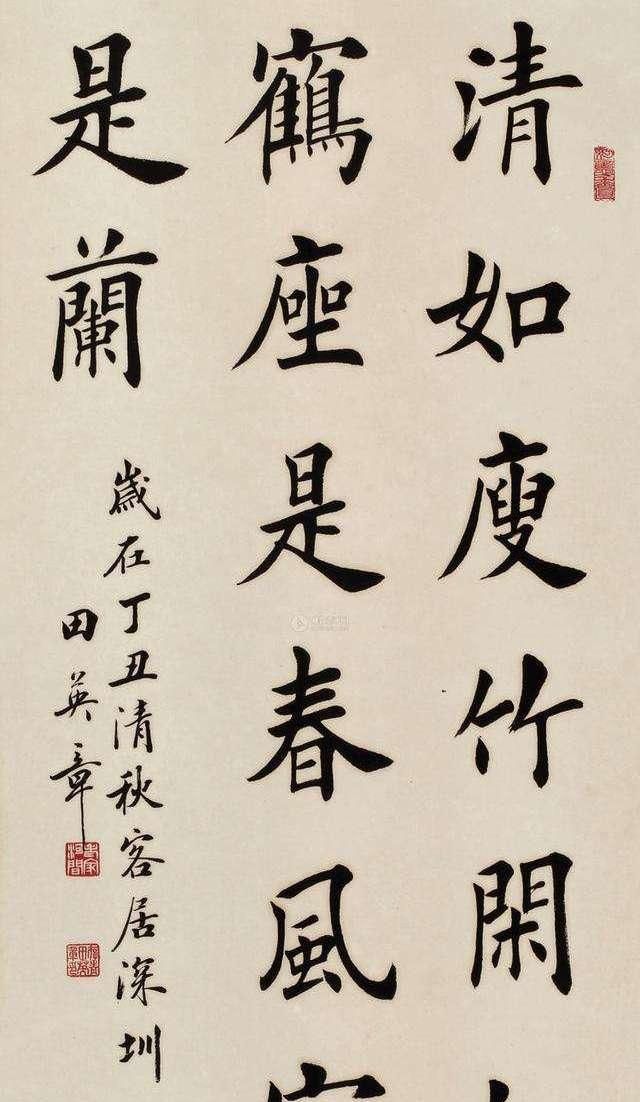 清如瘦竹閑
鶴座是春風
是蘭
歲在丁丑清秋客居深圳
田英章